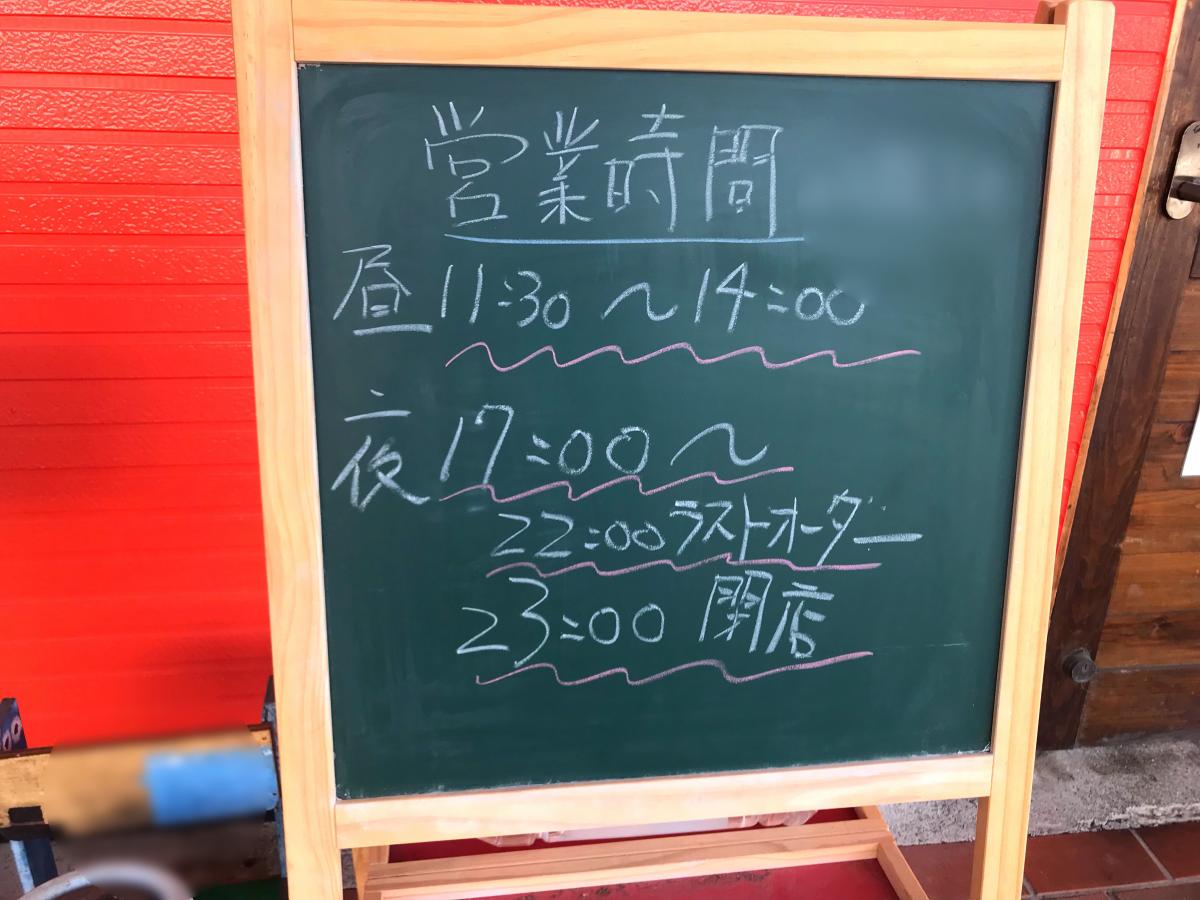 営業時間
昼 11:30 〜 14:00
夜 17:00 〜
22:00 ラストオーダー
23:00 閉店